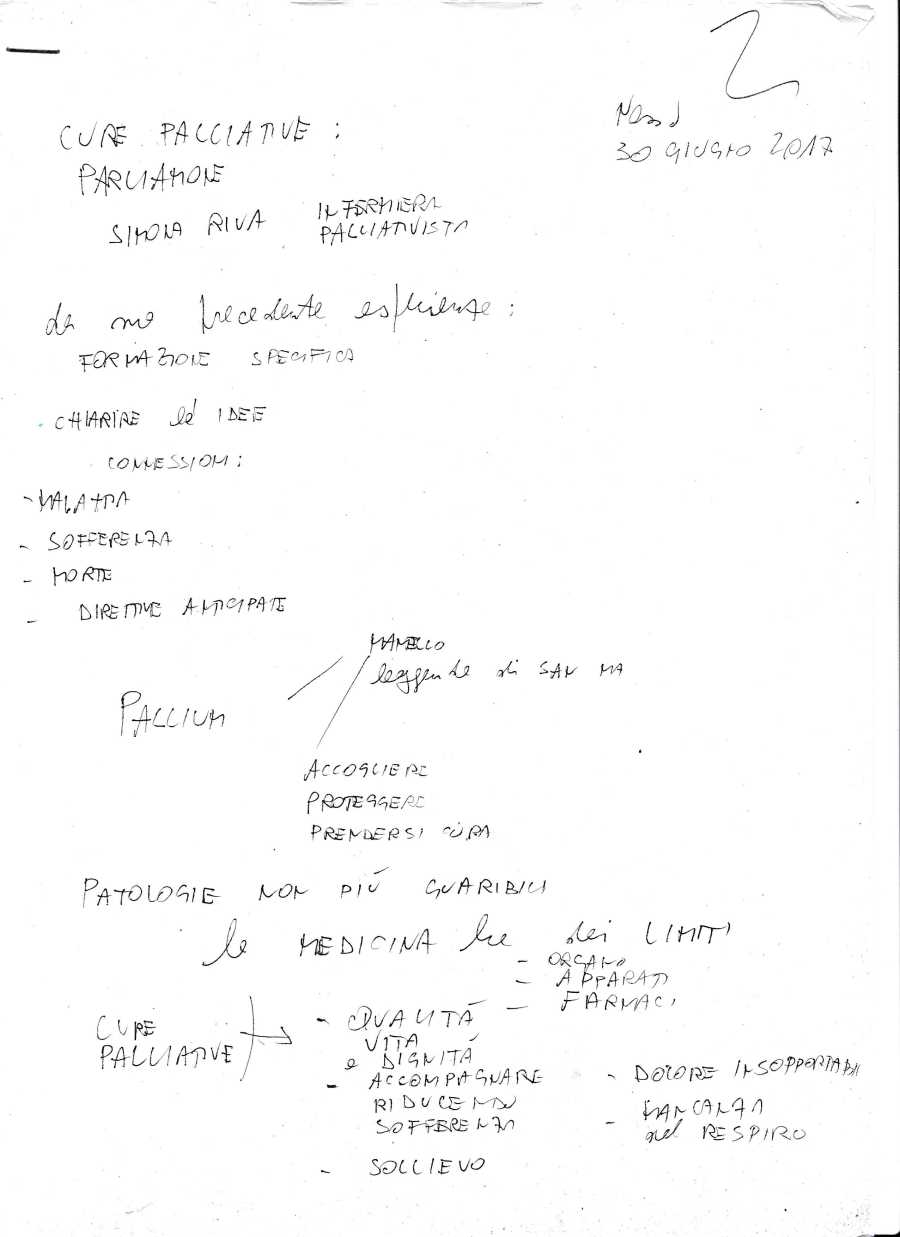 2
30 GIUGNO 2017
CURE PALLIATIVE :
PARLIAMONE
SIMONA RIVA INFERMIERA
PALLIATIVISTA
da mie precedente esperienze :
FORMAZIONE SPECIFICA
- CHIARIRE le IDEE
CONNESSIONI :
- MALATTIA
- SOFFERENZA
- MORTE
- DIRETTIVE ANTICIPATE
MANTELLO
leggenda di SAN MA
PALLIUM
ACCOGLIERE
PROTEGGERE
PRENDERSI CURA
PATOLOGIE NON PIÙ GUARIBILI
la MEDICINA ha dei LIMITI
- ORGANO
- APPARATI
- FARMACI
CURE
PALLIATIVE
- QUALITÀ
VITA
e DIGNITÀ
- ACCOMPAGNARE
RIDUCENDO
SOFFERENZA
- SOLLIEVO
- DOLORE INSOPPORTABI
- MANCANZA
nel RESPIRO